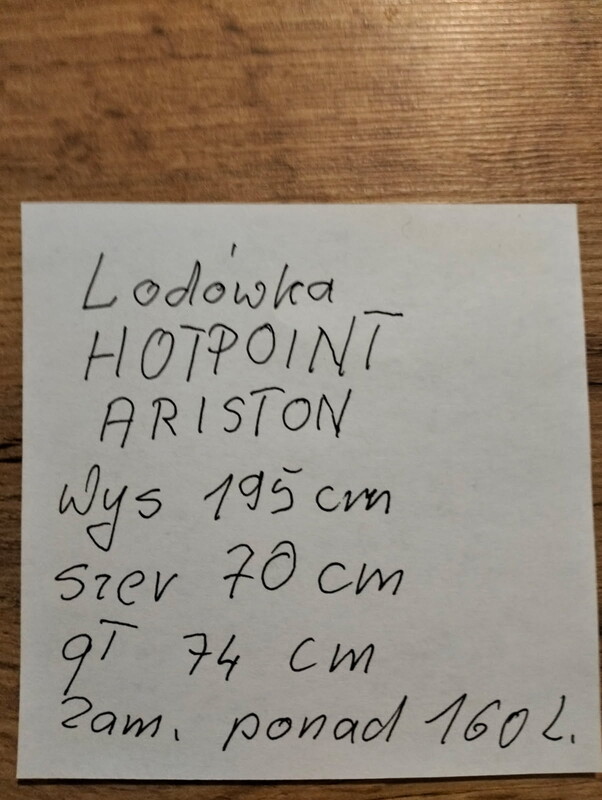 Lodówka
HOTPOINT
ARISTON
Wys 195 cm
szer 70 cm
gł 74 cm
Zam. ponad 160 L.